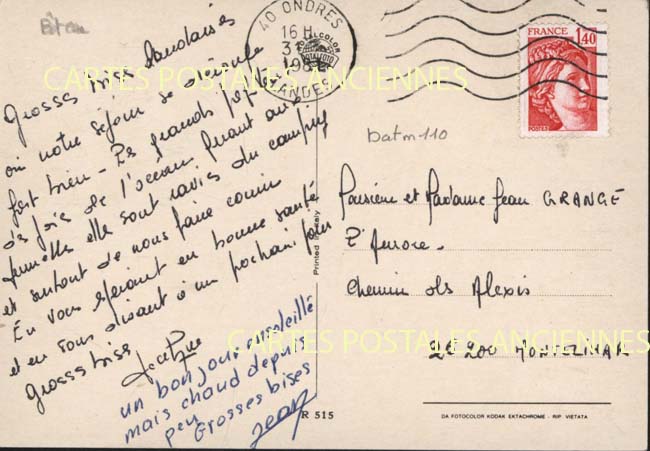 Grosses bises Landaises
où notre séjour se déroule
fort bien - Les grands
des joies de l'océan quant aux
jumelles elle sont ravies du camping
et surtout de nous faire courir
En vous espérant en bonne santé
et en vous disant à un prochain jour
Grosses bises
un bonjour ensoleillé
mais chaud depuis
peu
Grosses bises
Jean
40 ONDRES
16 H
LANDES
FRANCE
1,40
POSTES
batm110
Printed in Italy
Monsieur et Madame Jean GRANGE
L'Aurore -
Chemin des Alexis
26200 MONTELIMAR
R 515
DA FOTOCOLOR KODAK EKTACHROME - RIP. VIETATA
CARTES POSTALES ANCIENNES
CARTES POSTALES ANCIENNES